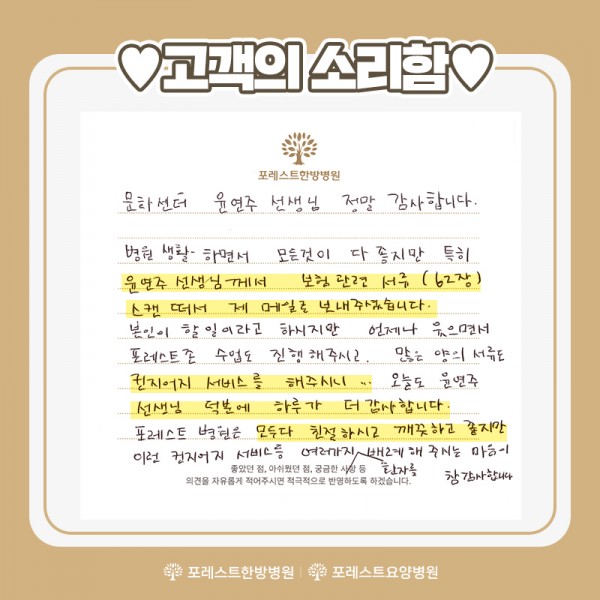 ♥고객의 소리함♥
포레스트한방병원
문화센터 윤연주 선생님 정말 감사합니다.
병원 생활 하면서 모든것이 다 좋지만 특히
윤연주 선생님께서 보험관련 서류 (62장)
스캔 떠서 제 메일로 보내주셨습니다.
본인이 할일이라고 하시지만 언제나 웃으면서
포레스트존 수업도 진행해주시고. 많은 양의 서류도
컨지어지 서비스를 해주시니 ... 오늘도 윤연주
선생님 덕분에 하루가 더 감사합니다.
포레스트 병원은 모두다 친절하시고 깨끗하고 좋지만
이런 컨지어지 서비스등 여러가지 환자를 배려해 주시는 마음이
참 감사합니다
좋았던 점, 아쉬웠던 점, 궁금한 사항 등
의견을 자유롭게 적어주시면 적극적으로 반영하도록 하겠습니다.
포레스트한방병원 | 포레스트요양병원